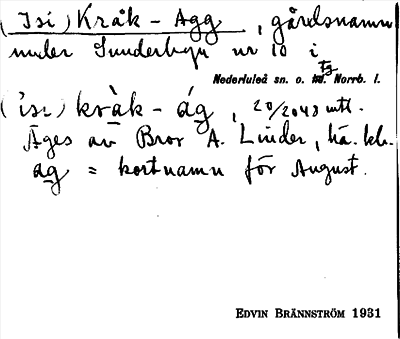 (Isi) Kråk - Agg, gårdsnamn
under Sunderbyn nr 10 i
Nederluleå sn. o. Norrb. l.
(ìsi) kràk - ág, 20/2048 mtl.
Äges av Bror A. Linder, hä. kb.
ag = kortnamn för August.
EDVIN BRÄNNSTRÖM 1931